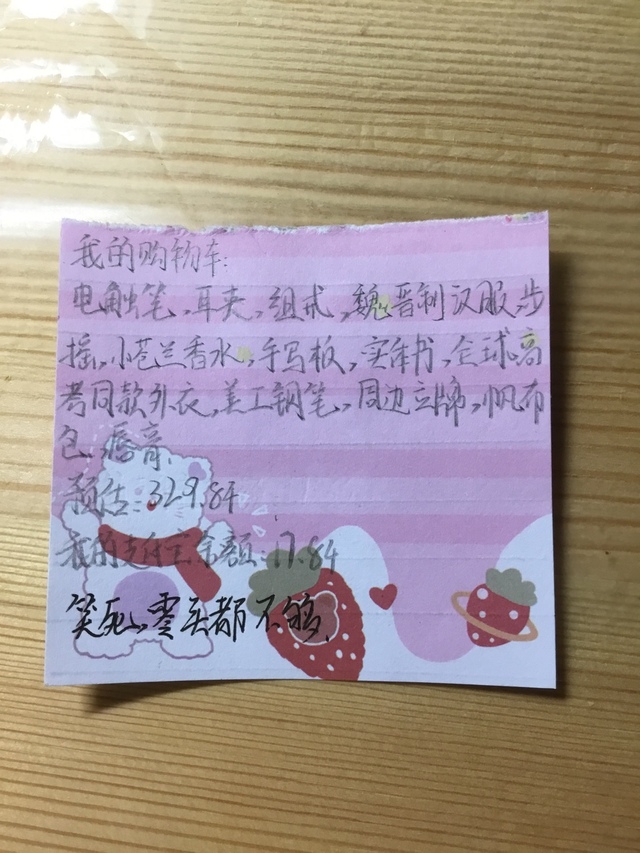 我的购物车:
电触笔,耳夹,组戒,魏晋制汉服,步
摇,小苍兰香水,手写板,实体书,全球高
考同款外衣,美工钢笔,周边立牌,帆布
包,唇膏.
预估:329.84
我的支付宝余额:17.84
笑死,零头都不够.